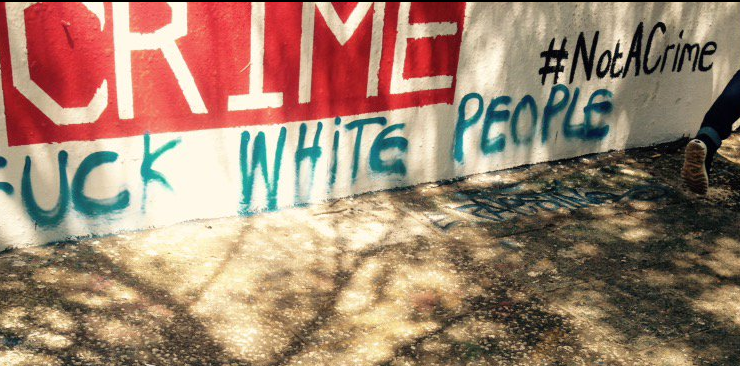 CRIME
#NotACrime
FUCK WHITE PEOPLE